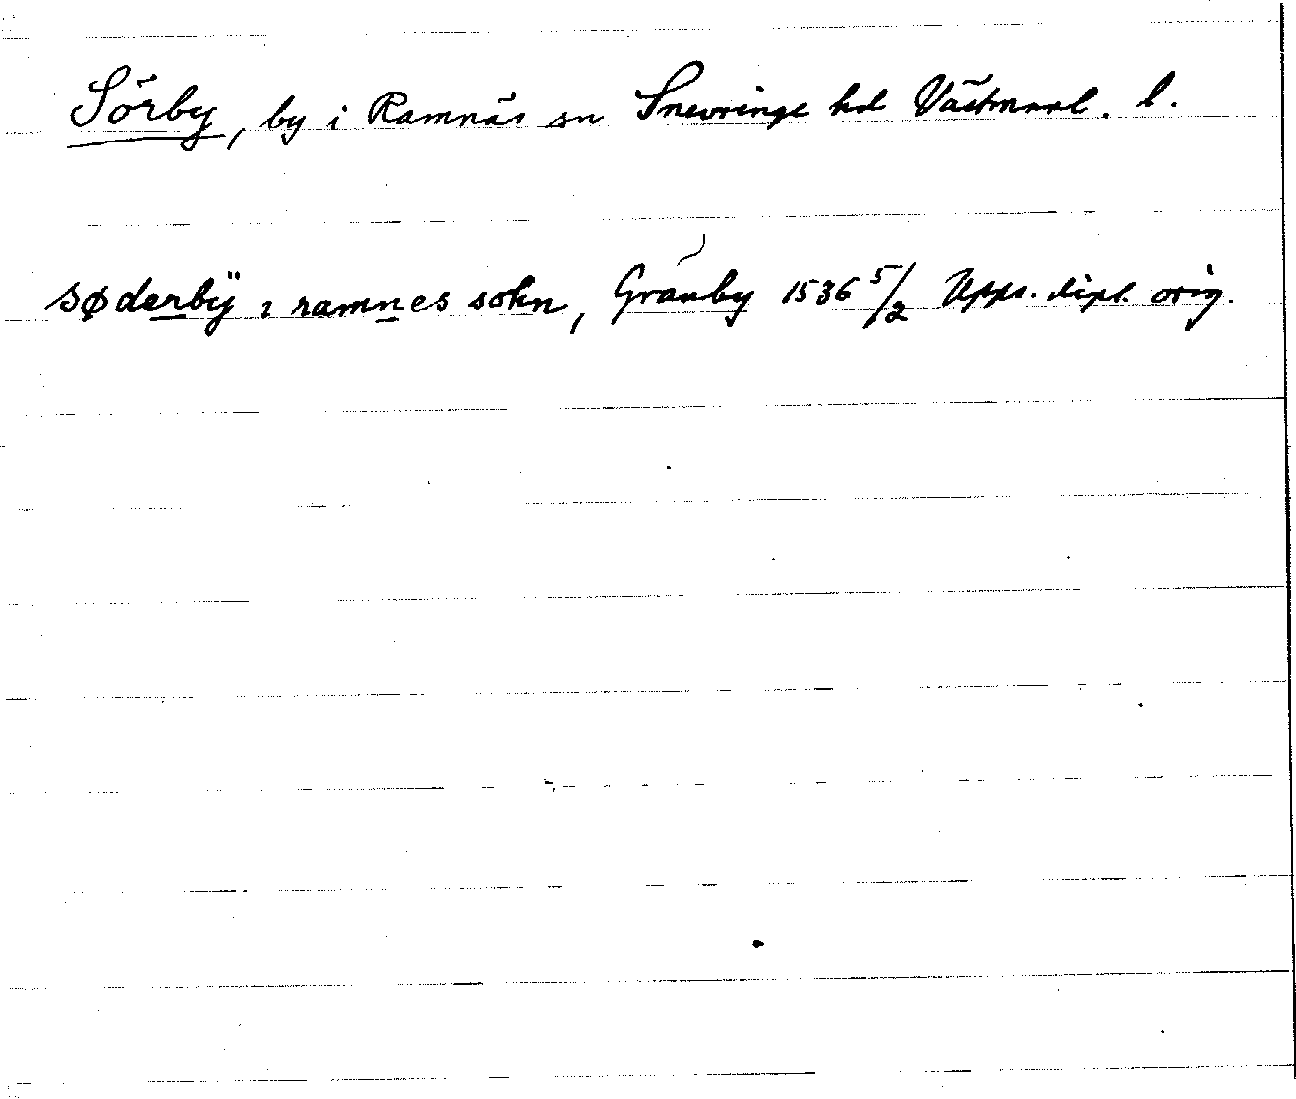 Sörby, by i Ramnäs sn Snevringe hd Västmanl. l.
søderbÿ i ramnes sokn, Granby 1536 5/2 Upps. dipl. orig.